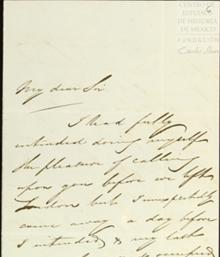 CENTRO DE
ESTUDIOS
DE HISTORIA
DE MEXICO
FUNDACIÓN
My dear Sir
I had fully
intended doing myself
the pleasure of calling
upon you before we left
London but I unexpectedly
came away a day before
I intended & my last
occupied